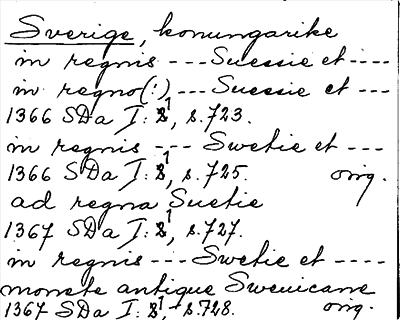 Sverige, konungarike
in regnis --- Suecie et ----
in regno(!) --- Suecie et ---
1366 SDa I: 1, s. 723.
in regnis --- Swetie et ---
1366 SDa I: 1, s. 725. orig.
ad regna Suetie
1367 SDa I: 1, s. 727.
in regnis --- Swetie et ----
monete antique Sweuicane
1367 SDa I: 1, s. 728. orig.